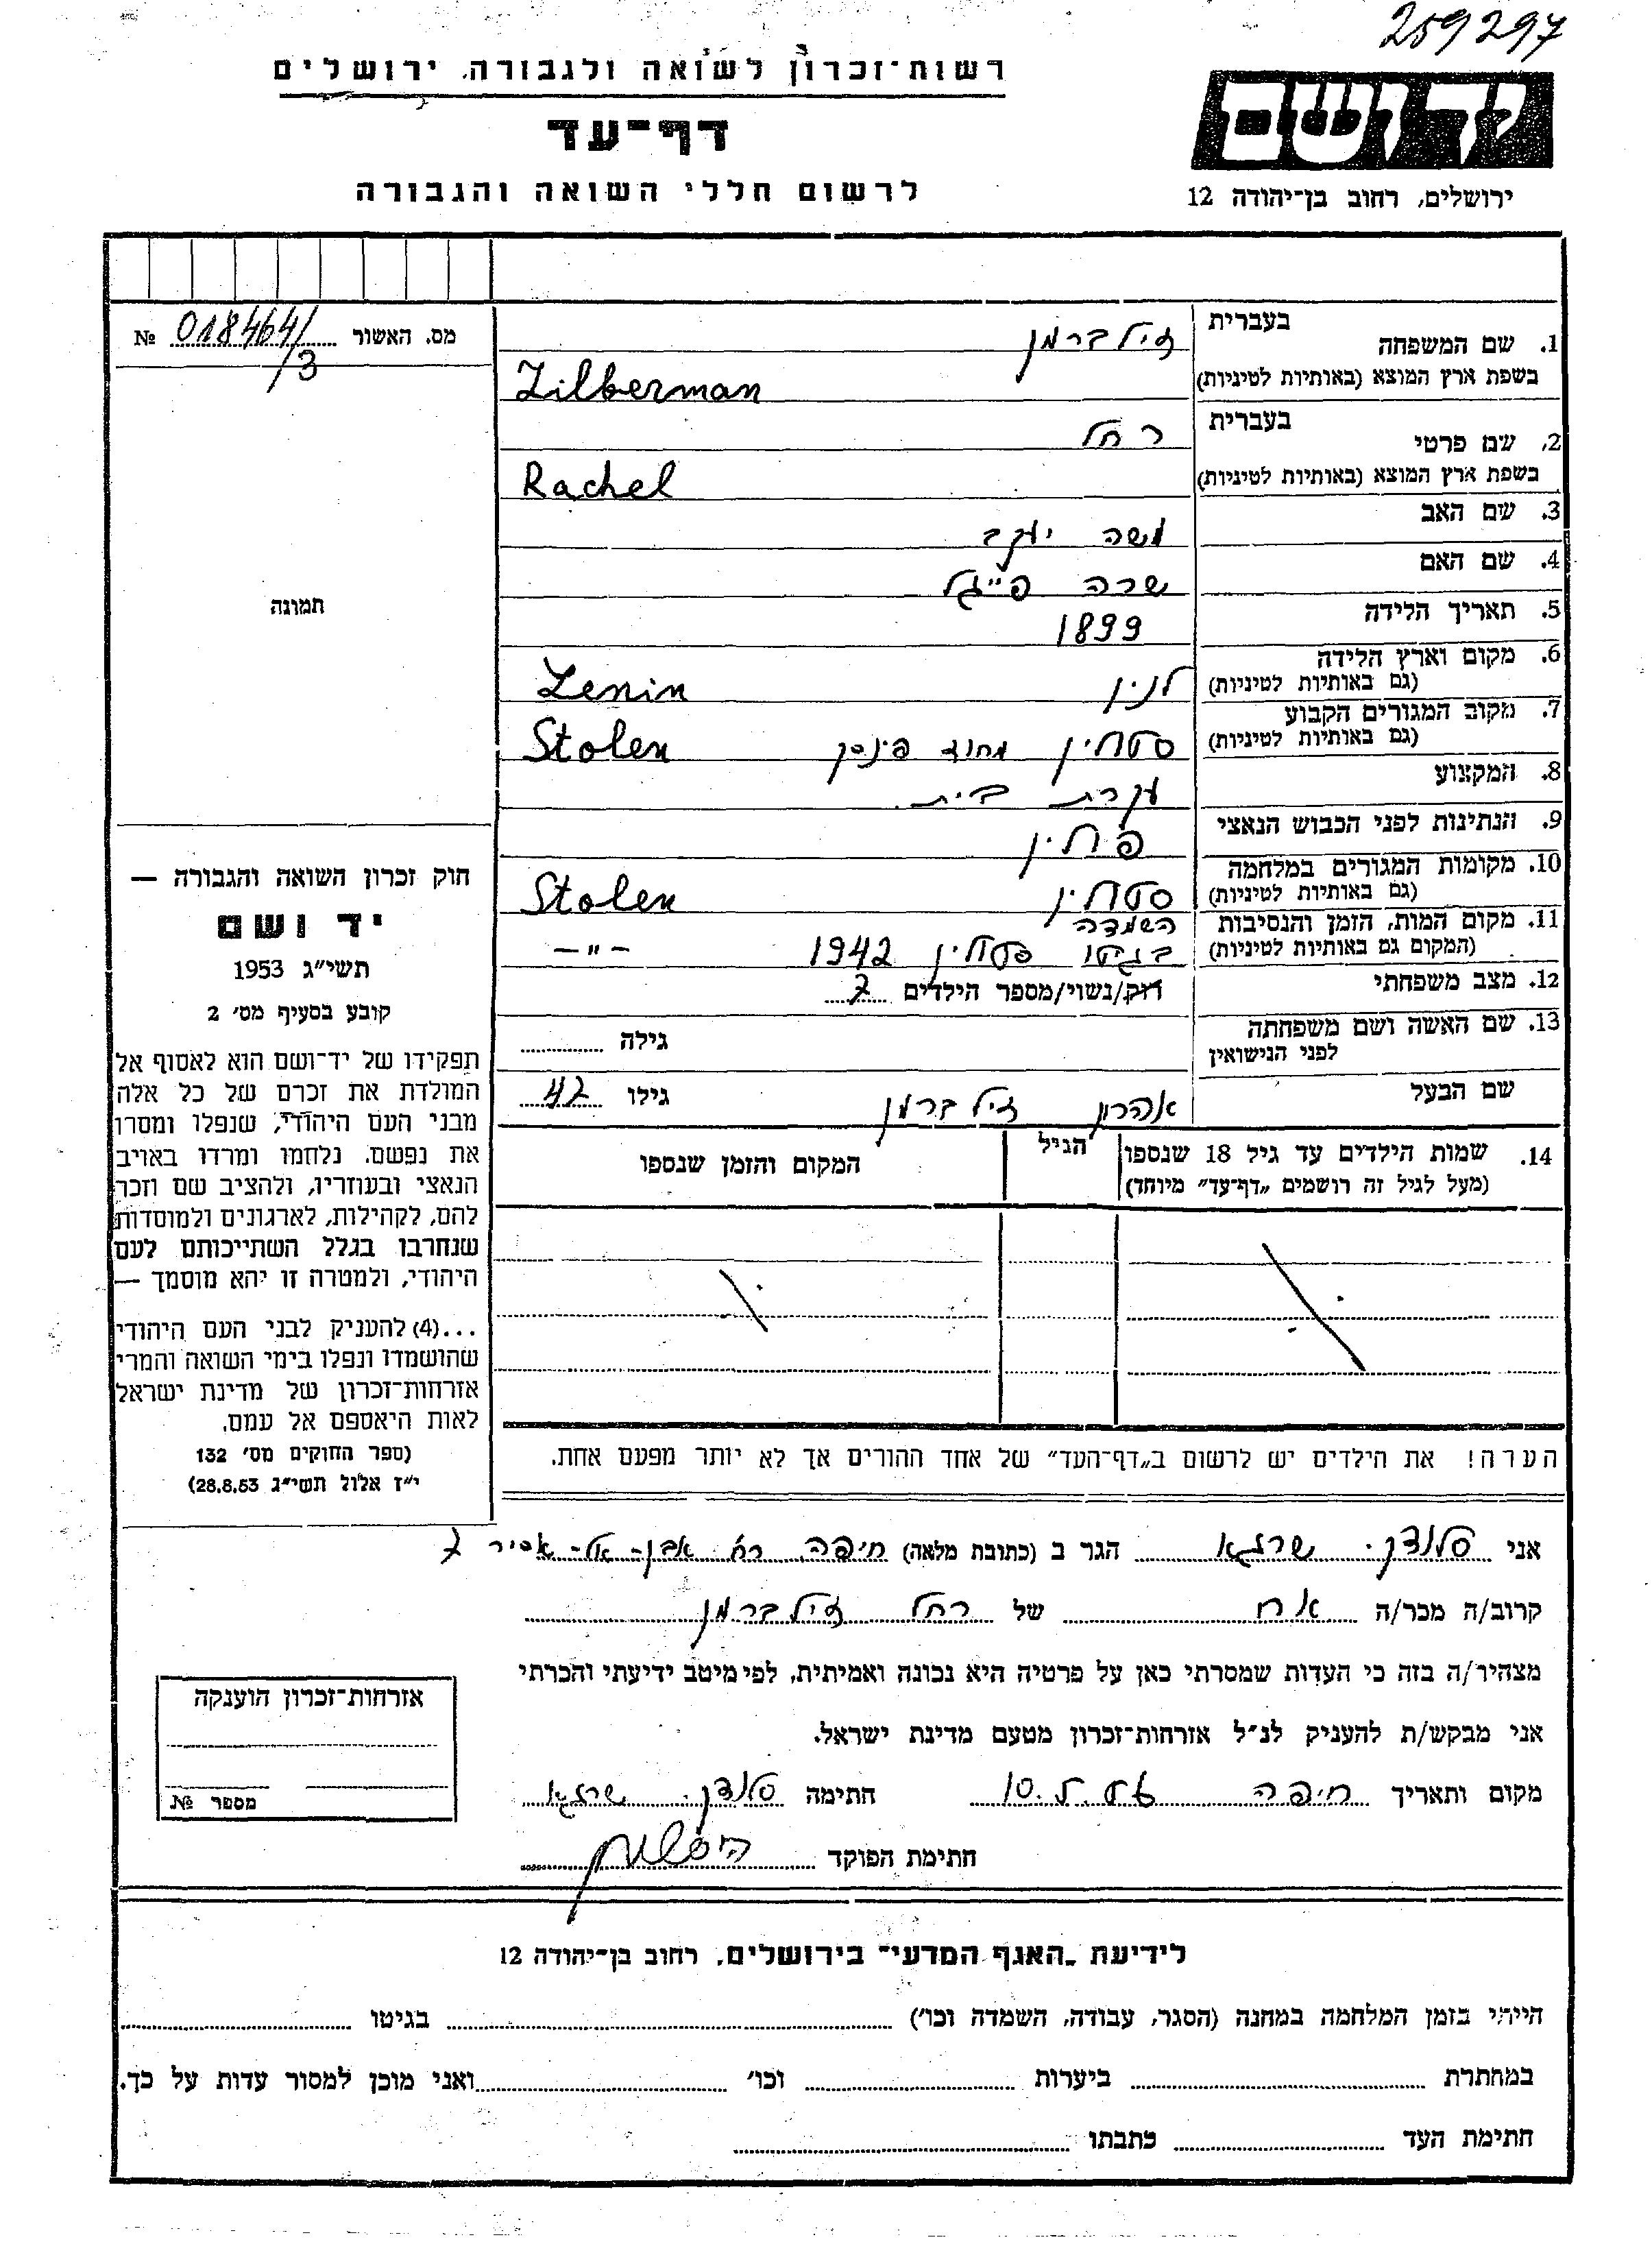 259297
רשות־זכרון לשואה ולגבורה, ירושלים
דף־עד
לרשום חללי השואה והגבורה
יד ושם
ירושלים, רחוב בן־יהודה 12
מס. האשור 018464/ №
/3
תמונה
חוק זכרון השואה והגבורה —
יד ושם
תשי״ג 1953
קובע בסעיף מס׳ 2
תפקידו של יד־ושם הוא לאסוף אל
המולדת את זכרם של כל אלה
מבני העם היהודי, שנפלו ומסרו
את נפשם, נלחמו ומרדו באויב
הנאצי ובעוזריו, ולהציב שם וזכר
להם, לקהילות, לארגונים ולמוסדות
שנחרבו בגלל השתייכותם לעם
היהודי, ולמטרה זו יהא מוסמך —
...(4) להעניק לבני העם היהודי
שהושמדו ונפלו בימי השואה והמרי
אזרחות־זכרון של מדינת ישראל
לאות היאספם אל עמם.
(ספר החוקים מס׳ 132
י״ז אלול תשי״ג 28.8.53)
1. שם המשפחה בעברית זילברמן
בשפת ארץ המוצא (באותיות לטיניות) Zilberman
2. שם פרטי בעברית רחל
בשפת ארץ המוצא (באותיות לטיניות) Rachel
3. שם האב משה יעקב
4. שם האם שרה פייגל
5. תאריך הלידה 1899
6. מקום וארץ הלידה לנין Lenin
(גם באותיות לטיניות)
7. מקום המגורים הקבוע סטולין מחוז פינסק Stolen
(גם באותיות לטיניות)
8. המקצוע עקרת בית.
9. הנתינות לפני הכבוש הנאצי פולין
10. מקומות המגורים במלחמה סטולין Stolen
(גם באותיות לטיניות)
11. מקום המות, הזמן והנסיבות השמדה
(המקום גם באותיות לטיניות) בגיטו סטולין 1942 -״-
12. מצב משפחתי רוק/נשוי/מספר הילדים 7
13. שם האשה ושם משפחתה גילה
לפני הנישואין
שם הבעל אהרון זילברמן גילו 47
14. שמות הילדים עד גיל 18 שנספו הגיל המקום והזמן שנספו
(מעל לגיל זה רושמים „דף־עד״ מיוחד)
הערה! את הילדים יש לרשום ב„דף־העד״ של אחד ההורים אך לא יותר מפעם אחת.
אני סלוצקי שרגא הגר ב (כתובת מלאה) חיפה רח׳
קרוב/ה מכר/ה אח של רחל זילברמן
מצהיר/ה בזה כי העדות שמסרתי כאן על פרטיה היא נכונה ואמיתית, לפי מיטב ידיעתי והכרתי
אני מבקש/ת להעניק לנ״ל אזרחות־זכרון מטעם מדינת ישראל.
מקום ותאריך חיפה חתימה סלוצקי שרגא
חתימת הפוקד
אזרחות־זכרון הוענקה
מספר №
לידיעת „האגף המדעי״ בירושלים, רחוב בן־יהודה 12
הייתי בזמן המלחמה במחנה (הסגר, עבודה, השמדה וכו׳) בגיטו
במחתרת ביערות וכו׳ ואני מוכן למסור עדות על כך.
חתימת העד כתבתו